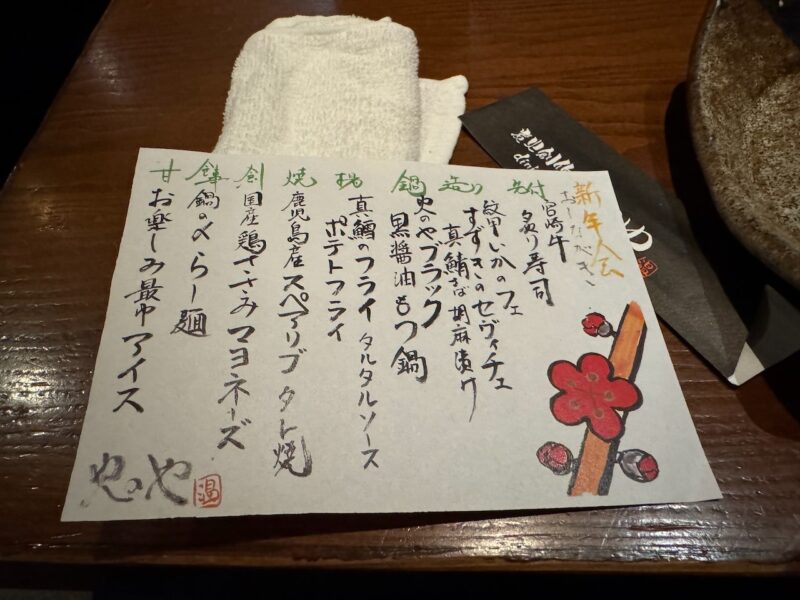 新年会
おしながき
先付
宮崎牛
炙り寿司
造り
紋甲いかのフェ
すずきのセヴィチェ
真鯖さば胡麻漬け
鍋
のやブラック
黒醤油もつ鍋
真鱈のフライ タルタルソース
ポテトフライ
焼
鹿児島産スペアリブ 焼
創
国産鶏ささみマヨネーズ
鍋の〆らー麺
甘
お楽しみ最中アイス